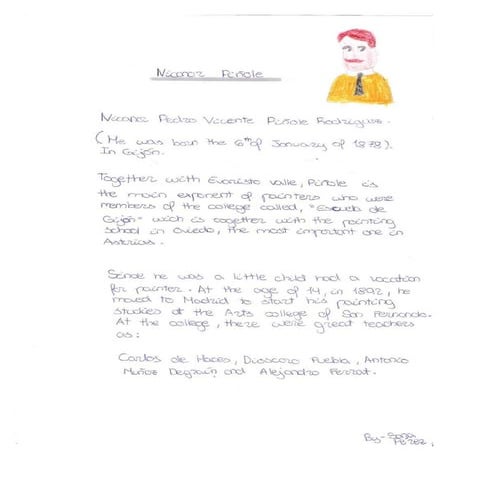 Nicanor Piñole
Nicanor Pedro Vicente Piñole Rodríguez.
(He was born the 6th of January of 1878).
In Gijón.
Together with Evaristo Valle, Piñole is
the main exponent of painters who were
members of the college called, "Escuela de
Gijón" wich is together with the painting
school in Oviedo, the most important one in
Astúrias.
Sinde he was a little child had a vocation
for painter. At the age of 14, in 1892, he
moved to Madrid to start his painting
studies at the Arts college of San Fernando.
At the college, there were great teachers
as:
Carlos de Haces, Dioscoro Puebla, Antonio
Muñoz Degrain and Alejandro Ferrat.
By- Sara
Pérez.